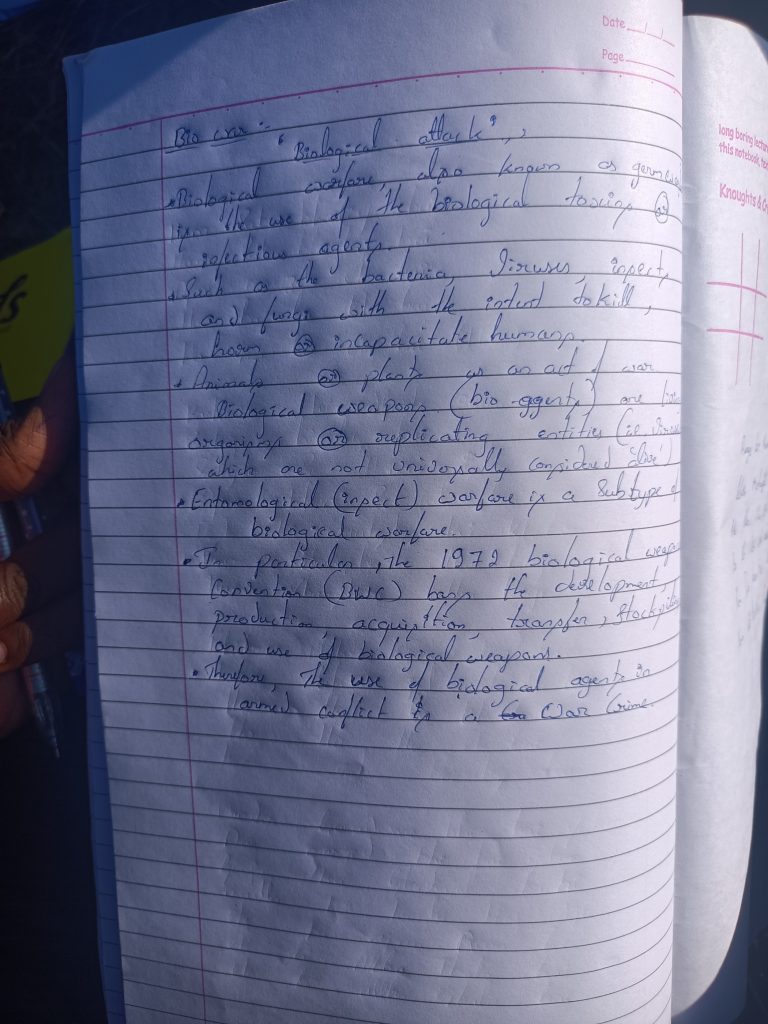 Date __/__/__
Page ______
Bio war :-
"Biological attack",,
• Biological warfare, also known as germ
is the use of the biological toxins or
infectious agents.
• Such as the bacteria, Viruses, insects,
and fungi with the intent to kill,
harm or incapacitate humans.
• Animals or plants as an act of war
Biological weapons (bio-aggents) are
organisms or replicating entities (ie Virus
which are not universally considered "alive")
• Entomological (insect) warfare is a Subtype of
biological warfare.
• In particular, the 1972 biological weapo
Convention (BWC) bans the development,
production, acquisition, transfer, Stockpili
and use of biological weapons.
• Therefore, The use of biological agents in
armed conflict is a War Crime.
long boring lectur
this notebook, tea
Knoughts & Cr